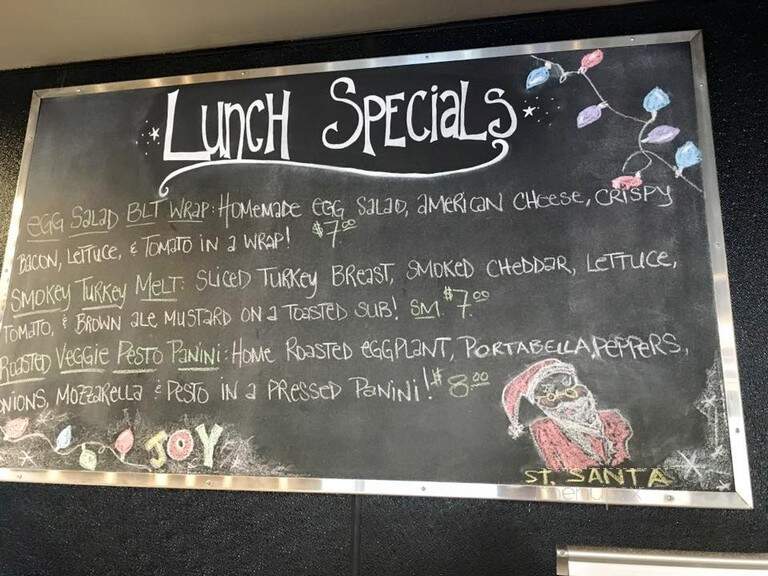 Lunch Specials
Egg Salad BLT Wrap: Homemade Egg Salad, American Cheese, Crispy
Bacon, Lettuce, & Tomato in a Wrap! $7.00
Smokey Turkey Melt: Sliced Turkey Breast, Smoked Cheddar, Lettuce,
Tomato, & Brown Ale Mustard on a Toasted Sub! SM $7.00
Roasted Veggie Pesto Panini: Home Roasted Eggplant, Portabella, Peppers,
Onions, Mozzarella & Pesto in a Pressed Panini! $8.00
JOY
ST. SANTA